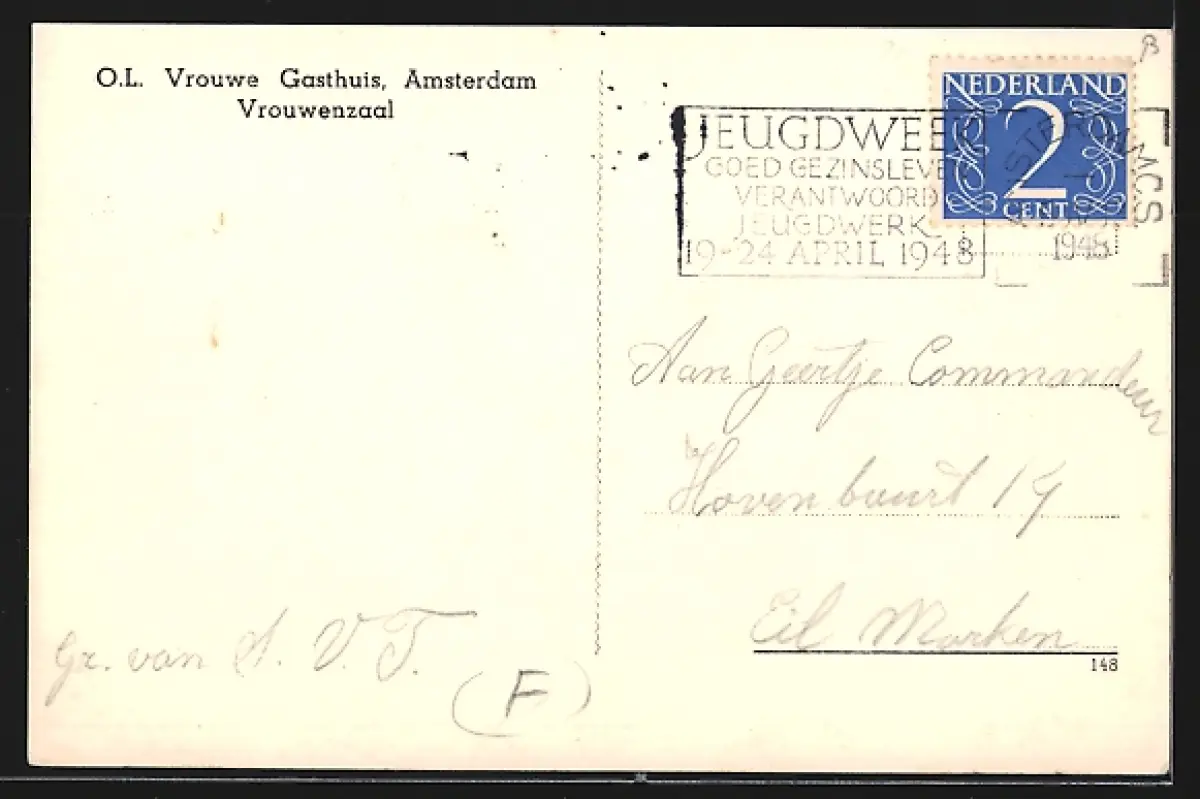 O.L. Vrouwe Gasthuis, Amsterdam
Vrouwenzaal
NEDERLAND
2
CENT
JEUGDWEEK
GOED GEZINSLEVE
VERANTWOORD
JEUGDWERK
19-24 APRIL 1948
1948
Aan Geertje Commandeur
Havenbuurt 19
Eil Marken
148
Gr. van S. V. T.
(F)